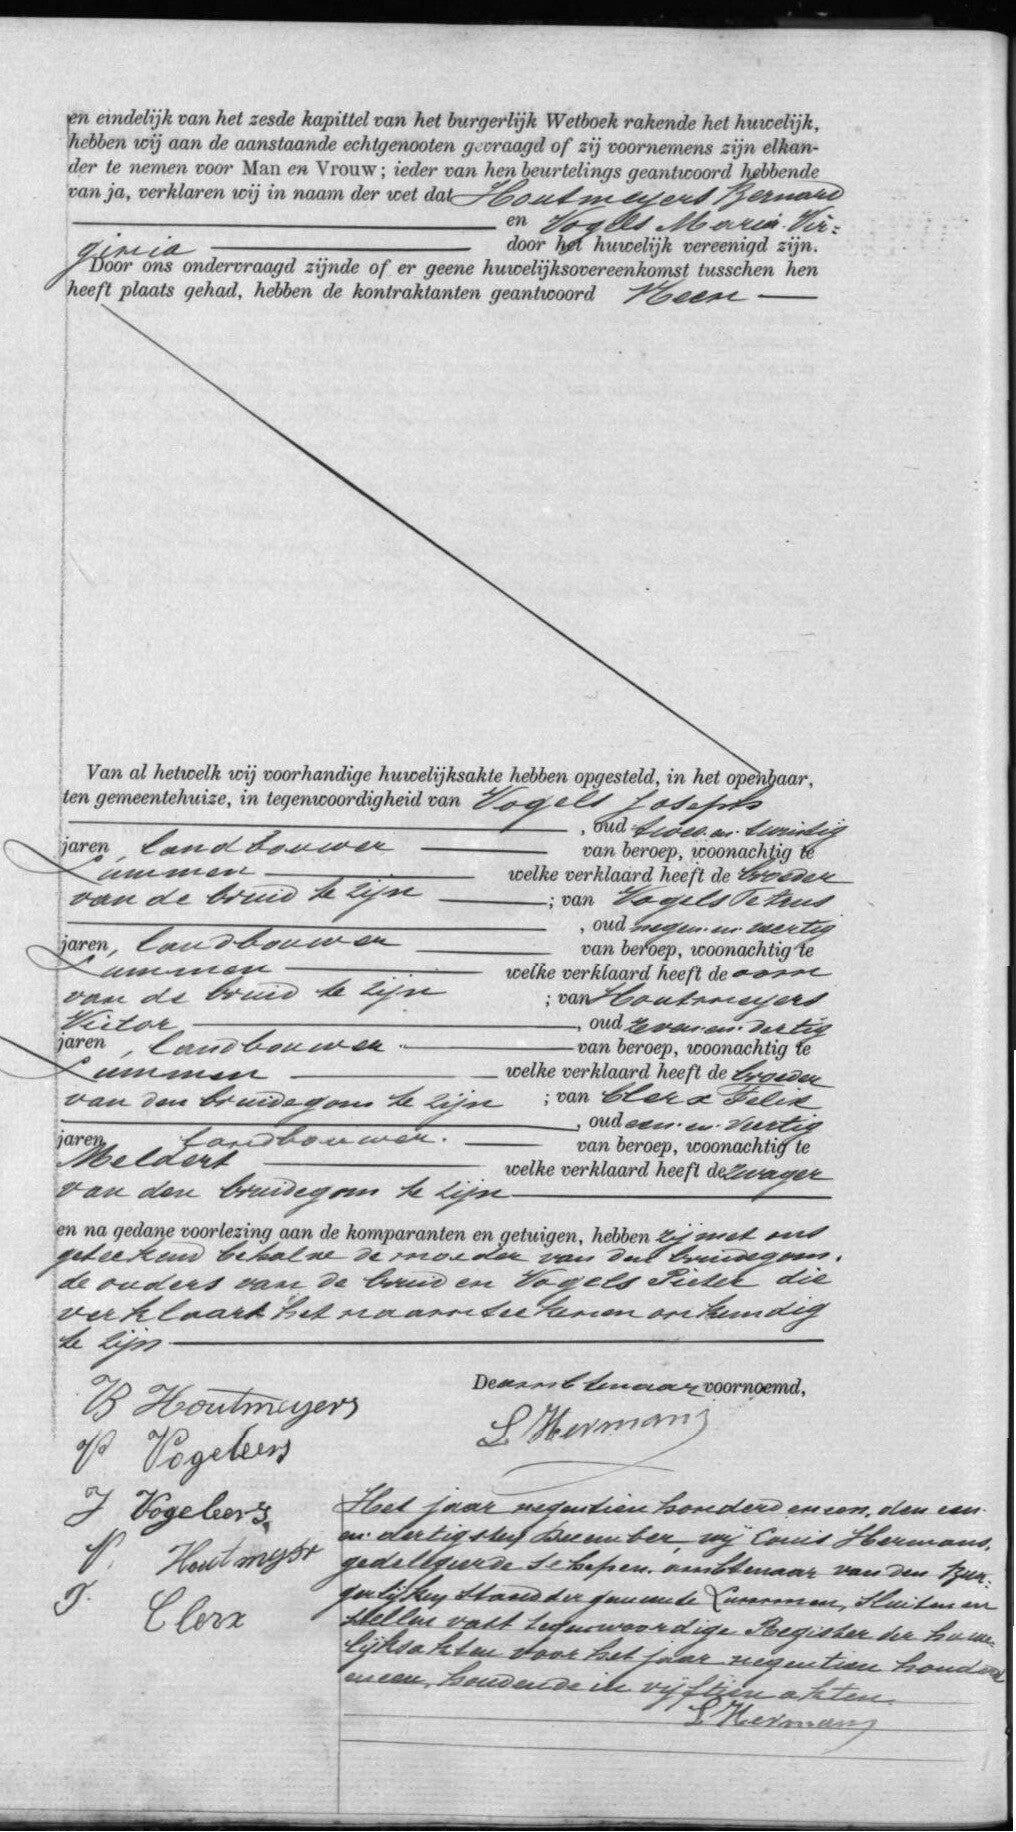 en eindelijk van het zesde kapittel van het burgerlijk Wetboek rakende het huwelijk,
hebben wij aan de aanstaande echtgenooten gevraagd of zij voornemens zijn elkan-
der te nemen voor Man en Vrouw; ieder van hen beurtelings geantwoord hebbende
van ja, verklaren wij in naam der wet dat Houtmeyers Bernard
en Vogels Maria Vir=
ginia door het huwelijk vereenigd zijn.
Door ons ondervraagd zijnde of er geene huwelijksovereenkomst tusschen hen
heeft plaats gehad, hebben de kontraktanten geantwoord Neen
Van al hetwelk wij voorhandige huwelijksakte hebben opgesteld, in het openbaar,
ten gemeentehuize, in tegenwoordigheid van Vogels Joseph
, oud twee en twintig
jaren, landbouwer van beroep, woonachtig te
Lummen welke verklaard heeft de broeder
van de bruid te zijn ; van Vogels Petrus
, oud negen en veertig
jaren, landbouwer van beroep, woonachtig te
Lummen welke verklaard heeft de oom
van de bruid te zijn ; van Houtmeyers
Victor , oud zeven en dertig
jaren, landbouwer van beroep, woonachtig te
Lummen welke verklaard heeft de broeder
van den bruidegom te zijn ; van Clerx Felix
, oud een en veertig
jaren landbouwer. van beroep, woonachtig te
Meldert welke verklaard heeft de zwager
van den bruidegom te zijn
en na gedane voorlezing aan de komparanten en getuigen, hebben zij met ons
geteekend behalve de moeder van den bruidegom,
de ouders van de bruid en Vogels Pieter die
verklaart het naamteekenen onkundig
te zijn
De ambtenaar voornoemd,
B Houtmeyers
L Hermans
V Vogeleers
J Vogeleers
V. Houtmeyer
F. Clerx
Het jaar negentien honderd en een, den een
en dertigsten December, wij Louis Hermans,
gedelegeerde Schepen, ambtenaar van den Bur=
gerlijken stand der gemeente Lummen, sluiten en
stellen vast tegenwoordige Register der huwe=
lijksakten voor het jaar negentien honderd
en een, houdende in vijftien akten.
L Hermans